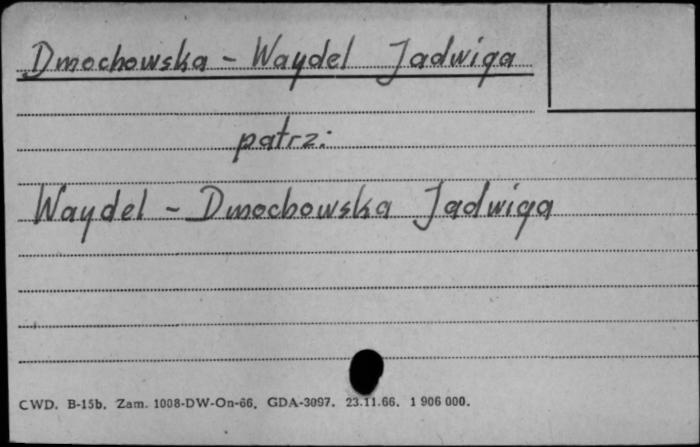 Dmochowska - Waydel Jadwiga
patrz:
Waydel - Dmochowska Jadwiga
CWD. B-15b. Zam. 1008-DW-On-66. GDA-3097. 23.11.66. 1 906 000.